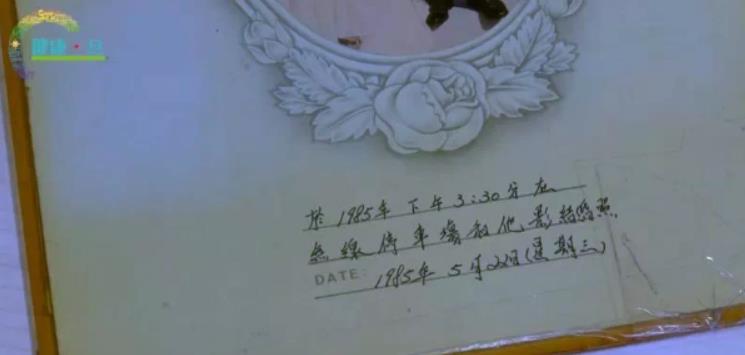 健康·旦
於1985年下午3:30分在
無線停車場和他影結婚照
DATE: 1985年5月22日(星期三)